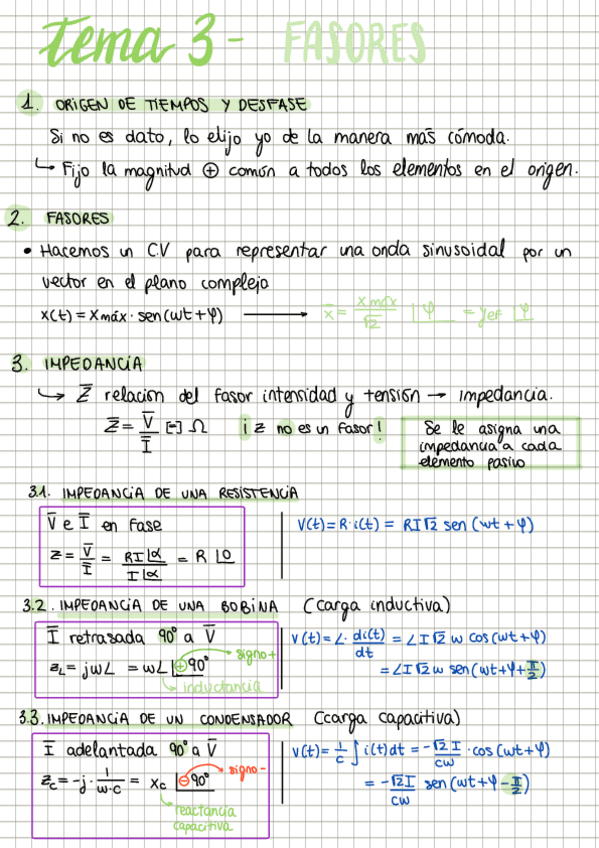 Tema 3 - FASORES
1. ORIGEN DE TIEMPOS Y DESFASE
Si no es dato, lo elijo yo de la manera más cómoda.
↳ Fijo la magnitud ⊕ común a todos los elementos en el origen.
2. FASORES
• Hacemos un C.V para representar una onda sinusoidal por un
vector en el plano complejo
x(t) = xmáx · sen(wt + φ) ⟶ x̄ = xmáx/√2 |φ = yef |φ
3. IMPEDANCIA
↳ Z̄ relación del fasor intensidad y tensión → impedancia.
Z̄ = V̄/Ī [=] Ω ¡z no es un fasor!
Se le asigna una
impedancia a cada
elemento pasivo
3.1. IMPEDANCIA DE UNA RESISTENCIA
V̄ e Ī en fase
z = V̄/Ī = RI|α / I|α = R |0
V(t) = R·i(t) = RI√2 sen (wt + φ)
3.2. IMPEDANCIA DE UNA BOBINA (carga inductiva)
Ī retrasada 90° a V̄
zL = jwL = wL |⊕90° signo+
inductancia
v(t) = L · di(t)/dt = LI√2 w cos(wt+φ)
= LI√2 w sen(wt+φ+π/2)
3.3. IMPEDANCIA DE UN CONDENSADOR (carga capacitiva)
Ī adelantada 90° a V̄
zc = -j · 1/w·c = xc |⊖90° signo-
reactancia
capacitiva
v(t) = 1/c ∫ i(t)dt = -√2 I/cw · cos(wt+φ)
= -√2I/cw sen(wt+φ-π/2)